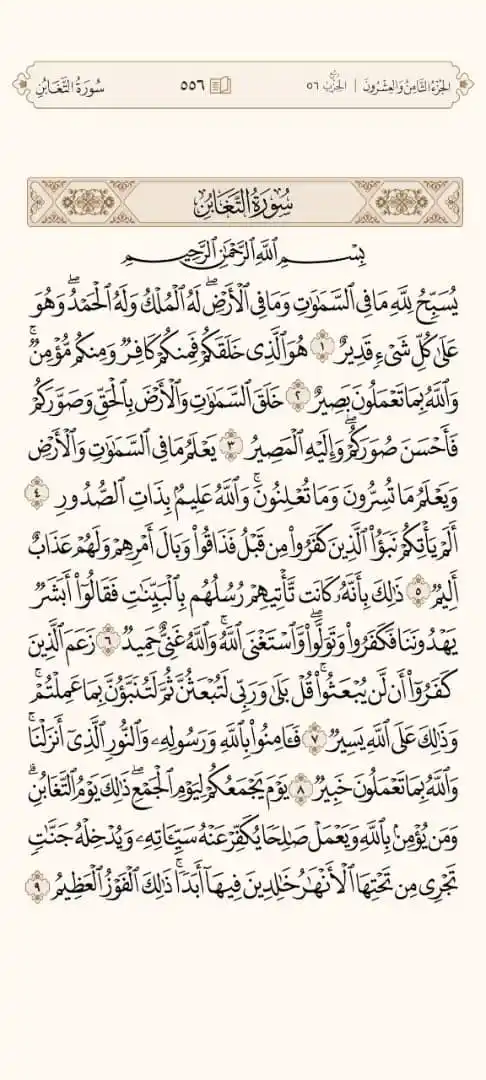 الجزء الثامن والعشرون | الحزب ٥٦ ٥٥٦ سورة التغابن
سُورَةُ التَّغَابُنِ
بِسْمِ ٱللَّهِ ٱلرَّحْمَٰنِ ٱلرَّحِيمِ
يُسَبِّحُ لِلَّهِ مَا فِي ٱلسَّمَٰوَٰتِ وَمَا فِي ٱلْأَرْضِۖ لَهُ ٱلْمُلْكُ وَلَهُ ٱلْحَمْدُۖ وَهُوَ
عَلَىٰ كُلِّ شَيْءٖ قَدِيرٌ ١ هُوَ ٱلَّذِي خَلَقَكُمْ فَمِنكُمْ كَافِرٞ وَمِنكُم مُّؤْمِنٞۚ
وَٱللَّهُ بِمَا تَعْمَلُونَ بَصِيرٌ ٢ خَلَقَ ٱلسَّمَٰوَٰتِ وَٱلْأَرْضَ بِٱلْحَقِّ وَصَوَّرَكُمْ
فَأَحْسَنَ صُوَرَكُمْۖ وَإِلَيْهِ ٱلْمَصِيرُ ٣ يَعْلَمُ مَا فِي ٱلسَّمَٰوَٰتِ وَٱلْأَرْضِ
وَيَعْلَمُ مَا تُسِرُّونَ وَمَا تُعْلِنُونَۚ وَٱللَّهُ عَلِيمُۢ بِذَاتِ ٱلصُّدُورِ ٤
أَلَمْ يَأْتِكُمْ نَبَؤُاْ ٱلَّذِينَ كَفَرُواْ مِن قَبْلُ فَذَاقُواْ وَبَالَ أَمْرِهِمْ وَلَهُمْ عَذَابٌ
أَلِيمٞ ٥ ذَٰلِكَ بِأَنَّهُۥ كَانَت تَّأْتِيهِمْ رُسُلُهُم بِٱلْبَيِّنَٰتِ فَقَالُوٓاْ أَبَشَرٞ
يَهْدُونَنَا فَكَفَرُواْ وَتَوَلَّواْۖ وَّٱسْتَغْنَى ٱللَّهُۚ وَٱللَّهُ غَنِيٌّ حَمِيدٞ ٦ زَعَمَ ٱلَّذِينَ
كَفَرُوٓاْ أَن لَّن يُبْعَثُواْۚ قُلْ بَلَىٰ وَرَبِّي لَتُبْعَثُنَّ ثُمَّ لَتُنَبَّؤُنَّ بِمَا عَمِلْتُمْۚ
وَذَٰلِكَ عَلَى ٱللَّهِ يَسِيرٞ ٧ فَـَٔامِنُواْ بِٱللَّهِ وَرَسُولِهِۦ وَٱلنُّورِ ٱلَّذِيٓ أَنزَلْنَاۚ
وَٱللَّهُ بِمَا تَعْمَلُونَ خَبِيرٞ ٨ يَوْمَ يَجْمَعُكُمْ لِيَوْمِ ٱلْجَمْعِۖ ذَٰلِكَ يَوْمُ ٱلتَّغَابُنِۗ
وَمَن يُؤْمِنۢ بِٱللَّهِ وَيَعْمَلْ صَٰلِحٗا يُكَفِّرْ عَنْهُ سَيِّـَٔاتِهِۦ وَيُدْخِلْهُ جَنَّٰتٖ
تَجْرِي مِن تَحْتِهَا ٱلْأَنْهَٰرُ خَٰلِدِينَ فِيهَآ أَبَدٗاۚ ذَٰلِكَ ٱلْفَوْزُ ٱلْعَظِيمُ ٩